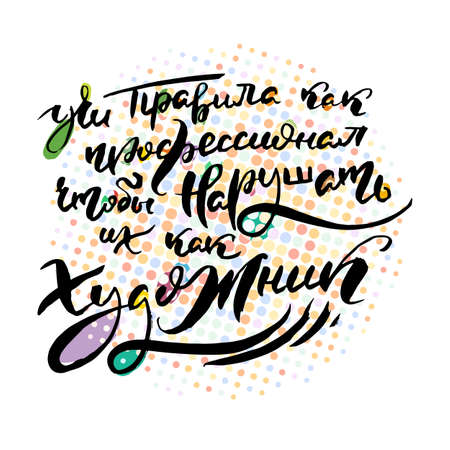 учи правила как
профессионал
чтобы нарушать
их как
художник